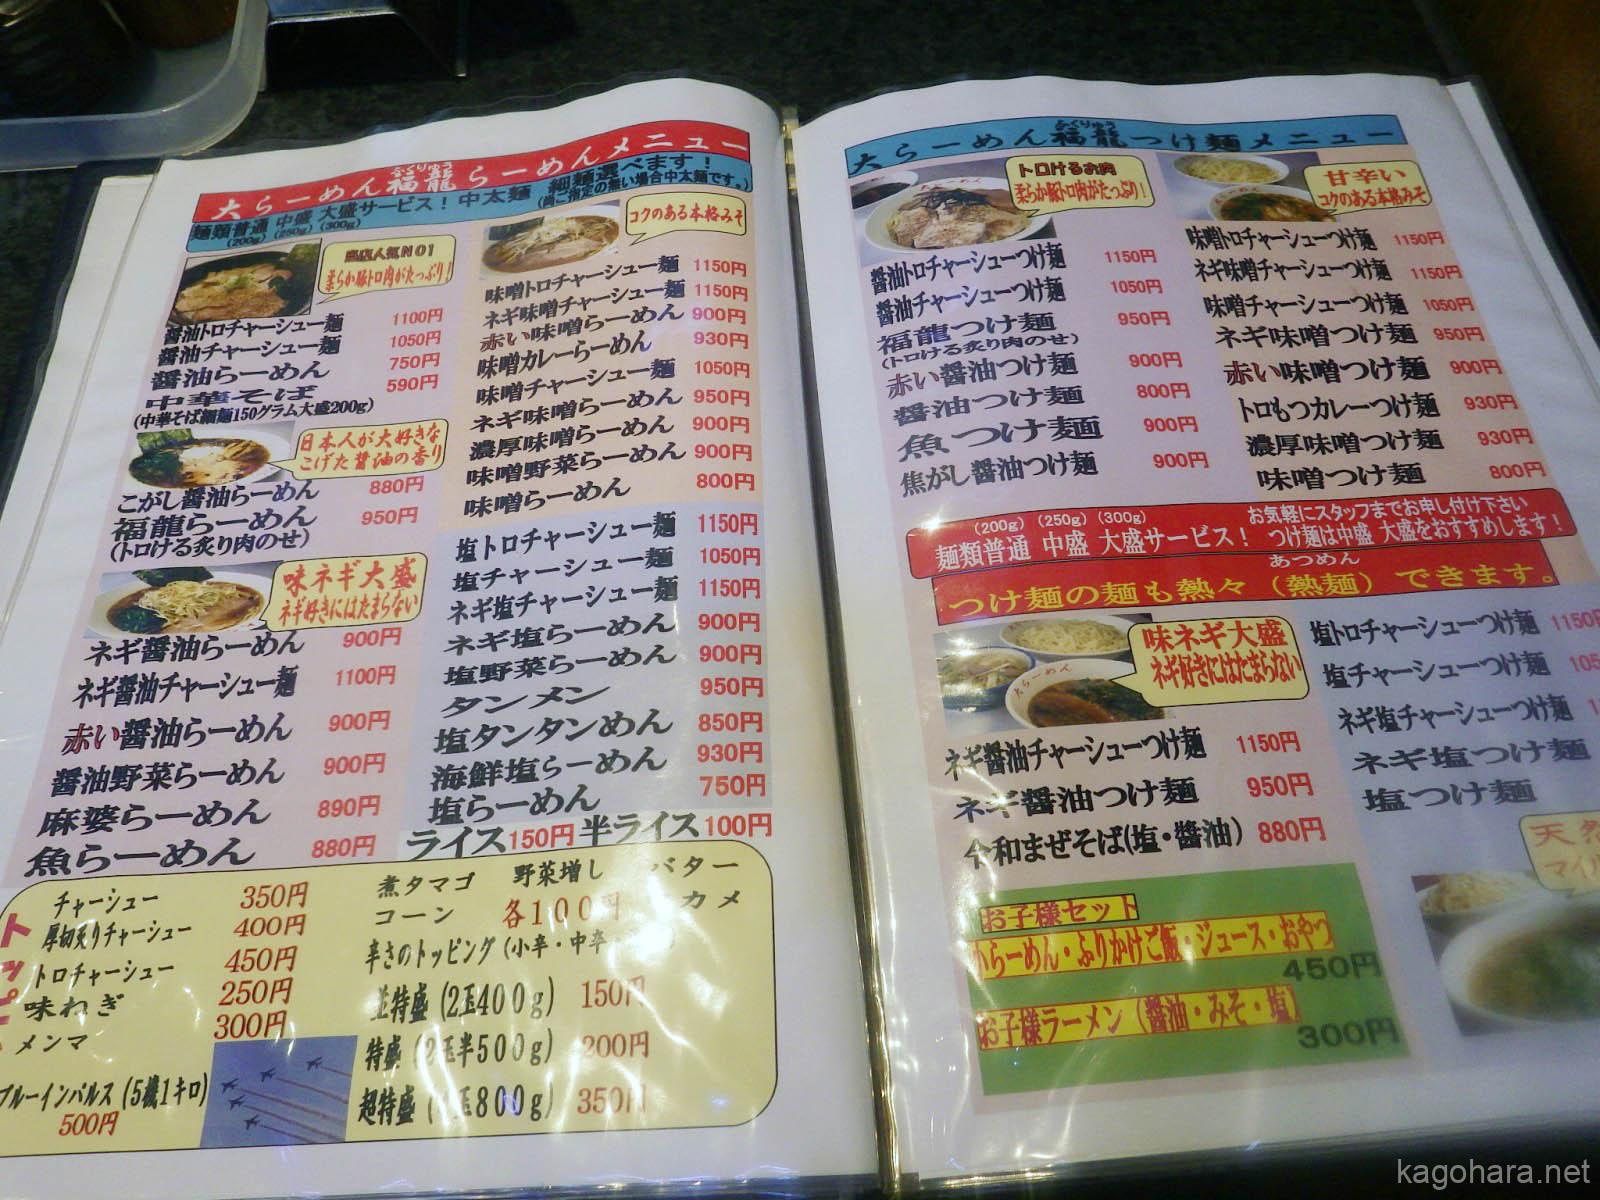 大らーめん福龍らーめんメニュー
ふくりゅう
麺類普通 中盛 大盛サービス！中太麺 細麺選べます！
(200g) (250g) (300g)
(尚ご指定の無い場合中太麺です。)
当店人気NO1
柔らか豚トロ肉がたっぷり！
醤油トロチャーシュー麺 1100円
醤油チャーシュー麺 1050円
醤油らーめん 750円
中華そば 590円
(中華そば細麺150グラム大盛200g)
日本人が大好きな
こげた醤油の香り
こがし醤油らーめん 880円
福龍らーめん 950円
(トロける炙り肉のせ)
味ネギ大盛
ネギ好きにはたまらない
ネギ醤油らーめん 900円
ネギ醤油チャーシュー麺 1100円
赤い醤油らーめん 900円
醤油野菜らーめん 900円
麻婆らーめん 890円
魚らーめん 880円
コクのある本格みそ
味噌トロチャーシュー麺 1150円
ネギ味噌チャーシュー麺 1150円
赤い味噌らーめん 900円
味噌カレーらーめん 930円
味噌チャーシュー麺 1050円
ネギ味噌らーめん 950円
濃厚味噌らーめん 900円
味噌野菜らーめん 900円
味噌らーめん 800円
塩トロチャーシュー麺 1150円
塩チャーシュー麺 1050円
ネギ塩チャーシュー麺 1150円
ネギ塩らーめん 900円
塩野菜らーめん 900円
タンメン 950円
塩タンタンめん 850円
海鮮塩らーめん 930円
塩らーめん 750円
ライス150円 半ライス100円
チャーシュー 350円
厚切炙りチャーシュー 400円
トロチャーシュー 450円
味ねぎ 250円
メンマ 300円
ブルーインパルス (5機1キロ)
500円
煮タマゴ 野菜増し バター
コーン 各100円 カメ
辛さのトッピング (小辛・中辛
並特盛 (2玉400g) 150円
特盛 (2玉半500g) 200円
超特盛 (4玉800g) 350円
大らーめん福龍つけ麺メニュー
ふくりゅう
トロけるお肉
柔らか豚トロ肉がたっぷり！
醤油トロチャーシューつけ麺 1150円
醤油チャーシューつけ麺 1050円
福龍つけ麺 950円
(トロける炙り肉のせ)
赤い醤油つけ麺 900円
醤油つけ麺 800円
魚つけ麺 900円
焦がし醤油つけ麺 900円
甘辛い
コクのある本格みそ
味噌トロチャーシューつけ麺 1150円
ネギ味噌チャーシューつけ麺 1150円
味噌チャーシューつけ麺 1050円
ネギ味噌つけ麺 950円
赤い味噌つけ麺 900円
トロもつカレーつけ麺 930円
濃厚味噌つけ麺 930円
味噌つけ麺 800円
(200g) (250g) (300g) お気軽にスタッフまでお申し付け下さい
麺類普通 中盛 大盛サービス！ つけ麺は中盛 大盛をおすすめします！
あつめん
つけ麺の麺も熱々（熱麺）できます。
味ネギ大盛
ネギ好きにはたまらない
大らーめん
ネギ醤油チャーシューつけ麺 1150円
ネギ醤油つけ麺 950円
令和まぜそば(塩・醤油) 880円
塩トロチャーシューつけ麺 1150円
塩チャーシューつけ麺 105
ネギ塩チャーシューつけ麺 1
ネギ塩つけ麺
塩つけ麺
天然
マイル
お子様セット
らーめん・ふりかけご飯・ジュース・おやつ
450円
お子様ラーメン（醤油・みそ・塩）
300円
kagohara.net